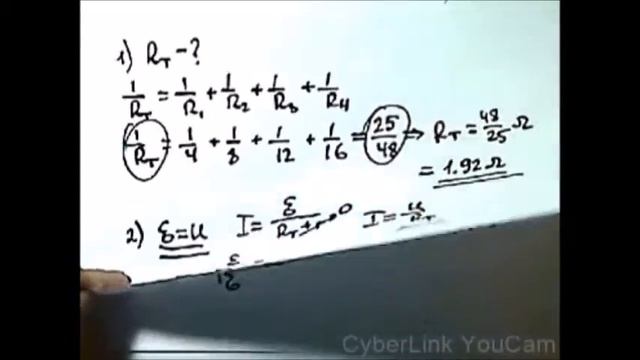 1) R_T - ?
1/R_T = 1/R_1 + 1/R_2 + 1/R_3 + 1/R_4
1/R_T = 1/4 + 1/8 + 1/12 + 1/16 = 25/48 ⇒ R_T = 48/25 Ω
= 1.92 Ω
2) ε = U I = ε/(R_T + r) → 0 I = U/R_T
CyberLink YouCam